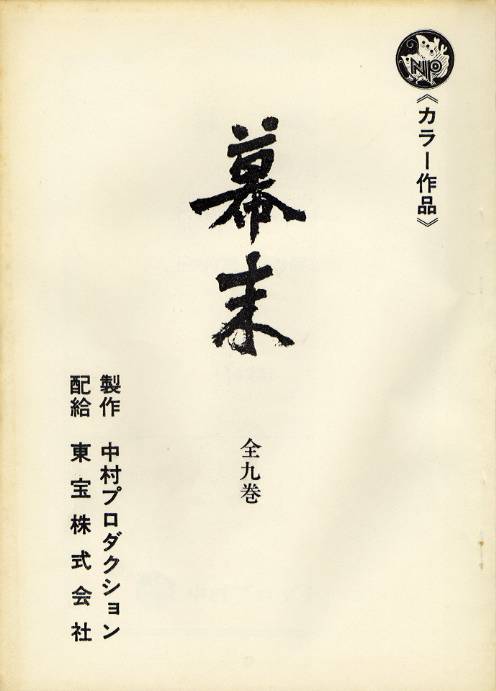 NP
《カラー作品》
幕末
全九巻
製作 中村プロダクション
配給 東宝株式会社